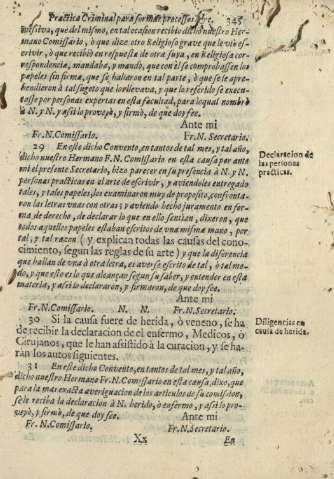 Practica Criminal para formar processos, &c. 345
missiva, que del mismo, en tal ocasion recibio dicho nuestro Her-
mano Comissario, ò que dize otro Religioso grave que le viò es-
crivir, ò que recibiò en respuesta de otra suya, en Religiosa cor-
respondencia, mandaba, y mandò, que con èl se comprobassen los
papeles sin firma, que se hallaron en tal parte, ò que se le apre-
hendieron à tal sugeto que los llevava, y que lo referido se execu-
tasse por personas expertas en esta facultad, para lo qual nombrò
à N. y N. y assi lo proveyò, y firmò, de que doy fee.
Ante mi
Fr. N. Comissario. Fr. N. Secretario.
29 En este dicho Convento, en tantos de tal mes, y tal año,
dicho nuestro Hermano F. N. Comissario en esta causa por ante
mi el presente Secretario, hizo parecer en su presencia à N. y N.
personas practicas en el arte de escrivir, y aviendoles entregado
tales, y tales papeles, los examinaron muy de proposito, confronta-
ron las letras unas con otras; y aviendo hecho juramento en for-
ma de derecho, de declarar lo que en ello sentian, dixeron, que
todos aquellos papeles estaban escritos de una misma mano, por
tal, y tal razon ( y explican todas las causas del cono-
cimiento, segun las reglas de su arte) y que la diferencia
que hallan de una à otra letra, es averse escrito de tal, ò tal mo-
do, y que esto es lo que alcanzan segun su saber, y entender en esta
materia, y assi lo declararon, y firmaron, de que doy fee.
Ante mi
Fr. N. Comissario. N. N. Fr. N. Secretario.
30 Si la causa fuere de herida, ò veneno, se ha
de recibir la declaracion de el enfermo, Medicos, ò
Cirujanos, que le han assistido à la curacion, y se ha-
ràn los autos siguientes.
31 En este dicho Convento, en tantos de tal mes, y tal año,
dicho nuestro Hermano Fr. N. Comissario en esta causa, dixo, que
para la mas exacta averiguacion de los articulos de su comission,
se le reciba la declaracion à N. herido, ò enfermo, y assi lo pro-
veyò, y firmò, de que doy fee. Ante mi
Fr. N. Comissario. Fr. N. Secretario.
Xx En
Declaracion de
las personas
practicas.
Diligencias en
causa de herida.